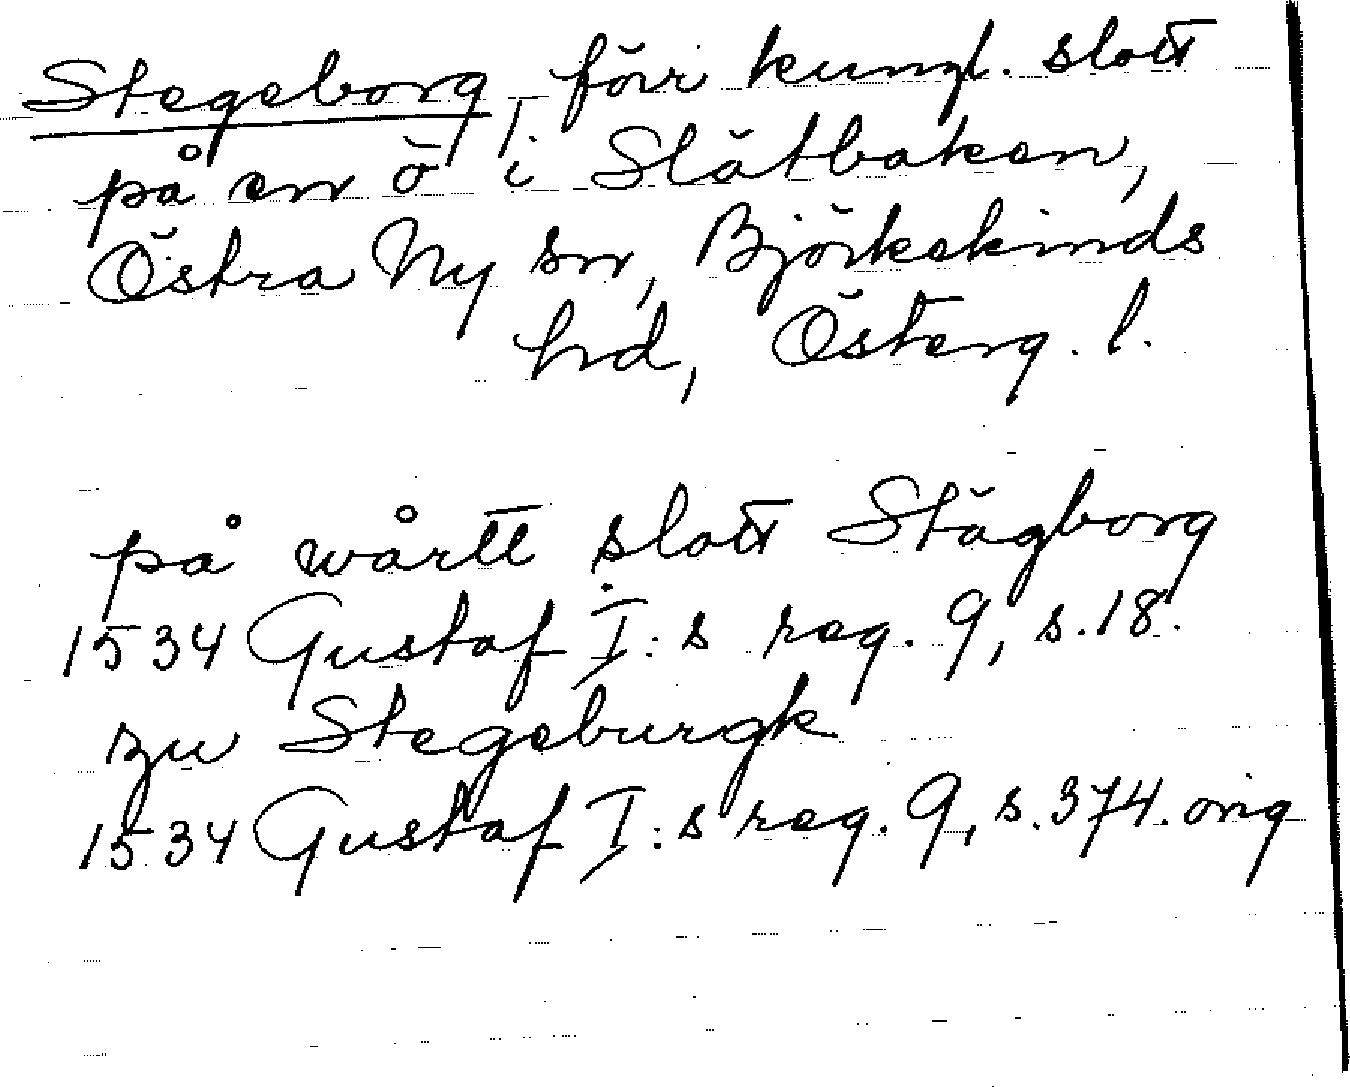 Stegeborg, förr kungl. slott
på en ö i Slätbaken,
Östra Ny sn, Björkekinds
hd, Österg. l.
på wårtt slott Stägborg
1534 Gustaf I:s reg. 9, s. 18.
zu Stegeburgk
1534 Gustaf I:s reg. 9, s. 374. orig